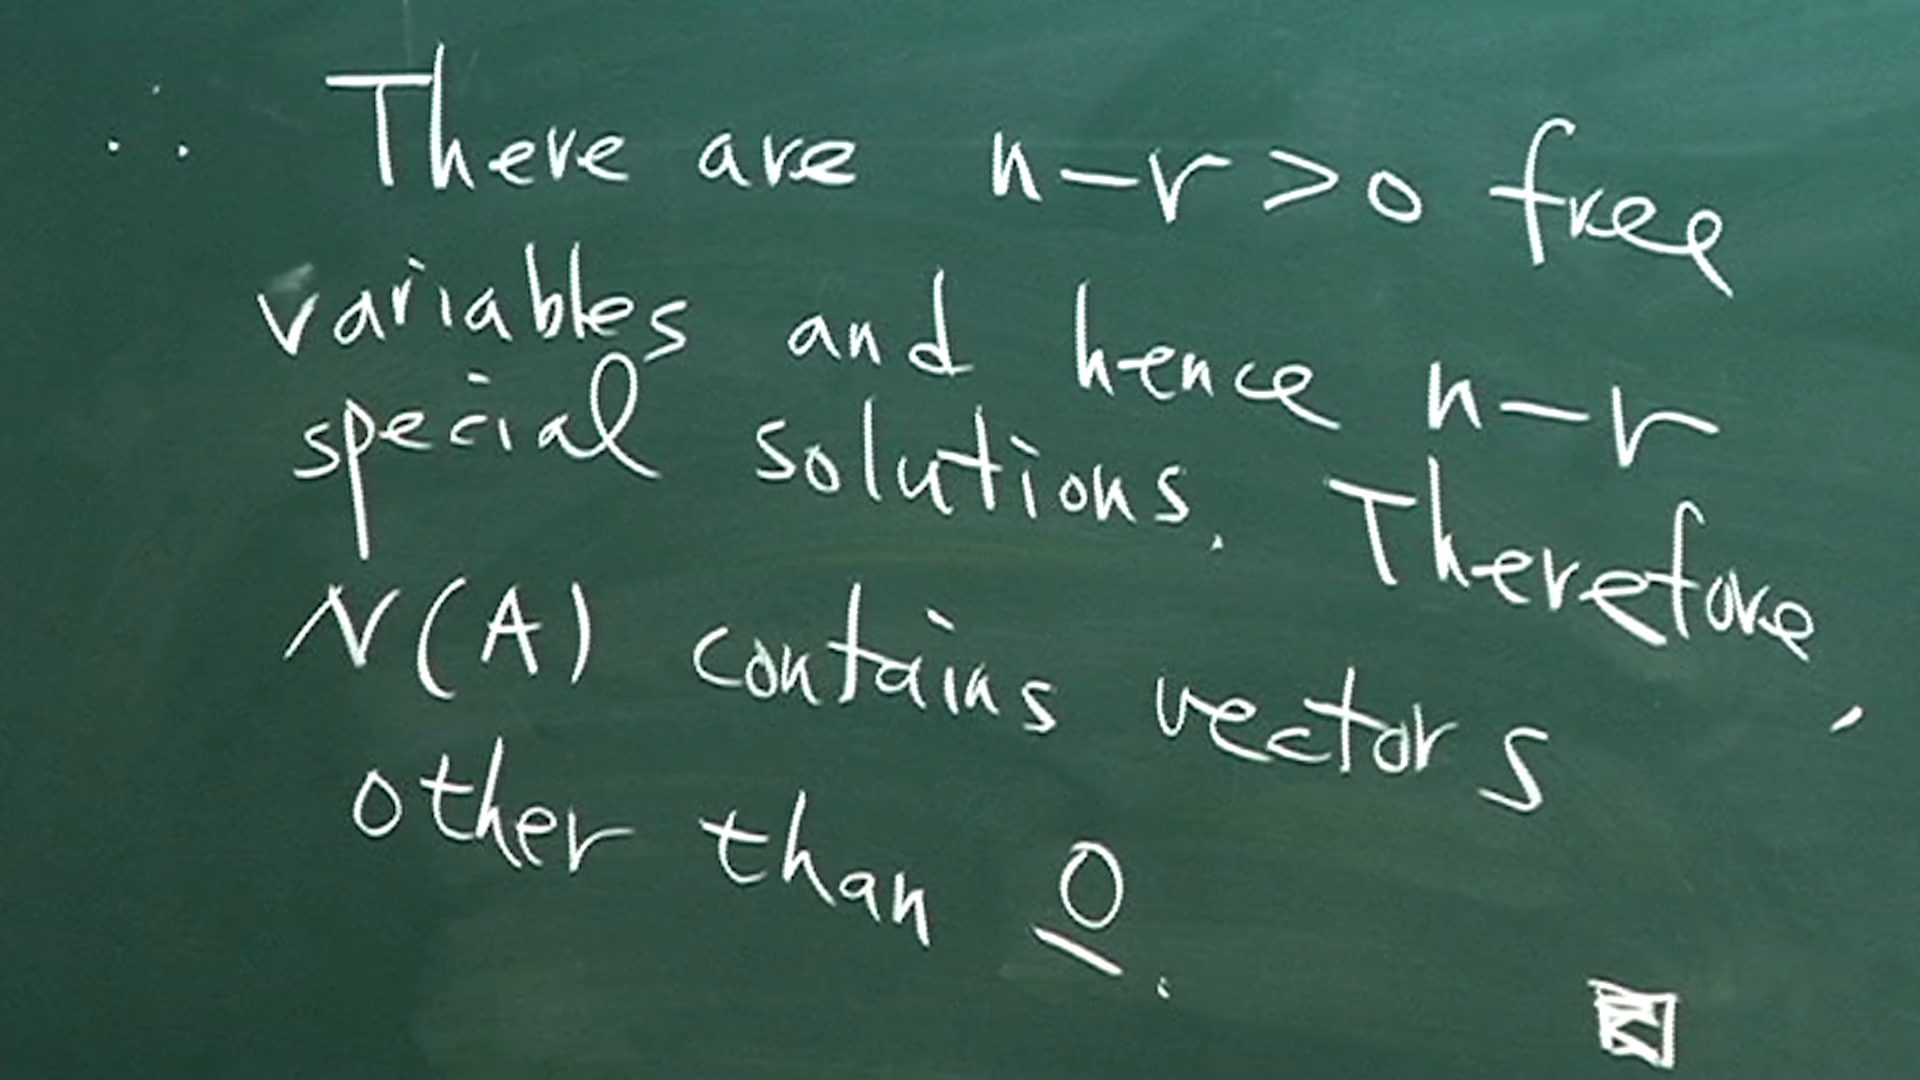 ∴ There are n-r>0 free
variables and hence n-r
special solutions. Therefore,
N(A) contains vectors
other than 0.